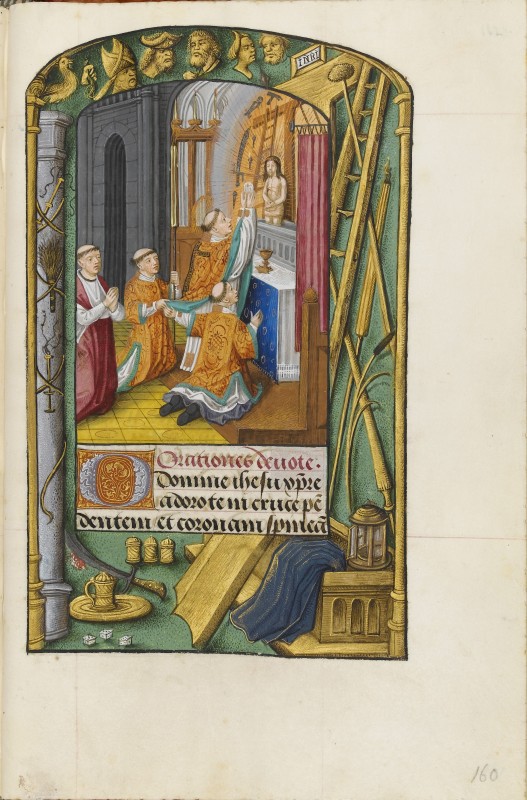 INRI
Orationes deuote.
Domine ihesu xpre
adoro te in cruce pē
dentem et coronam spineā
160